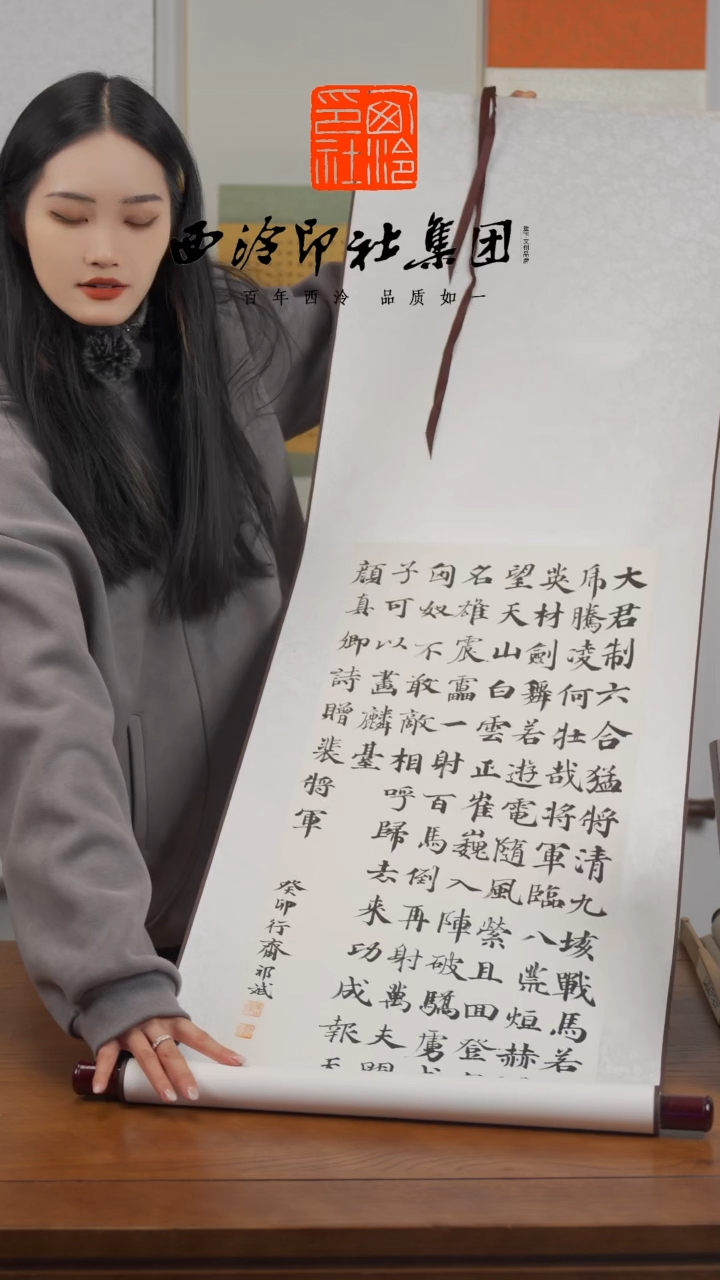 西泠印社
西泠印社集团
百年西泠 品质如一
大君制六合猛将清九垓戰馬若
乕騰凌何壯哉将軍臨八荒烜赫
英材劍舞若遊電隨風縈且囬登
望天山白雲正崔巍入陣破驕虜
名雄震靁一射百馬倒再射萬夫開
匈奴不敢敵相呼歸去来功成報天
子可以畫麟臺
顏真卿詩贈裴将軍
癸卯行齋祁斌